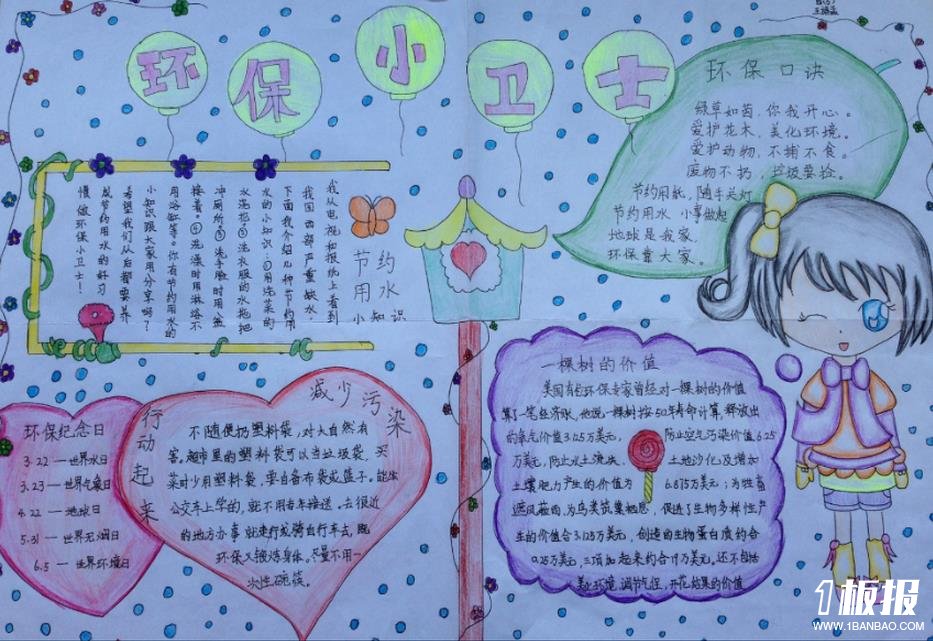 环保小卫士
环保口诀
绿草如茵，你我开心。
爱护花木，美化环境。
爱护动物，不捕不食。
废物不扔，垃圾要捡。
节约用纸，随手关灯
节约用水 小事做起
地球是我家，
环保靠大家。
节约
用水
小知识
我从电视和报纸上看到
我国西部严重缺水。
下面我介绍几种节约用
水的小知识：①用洗菜的
水浇花②洗衣服的水拖把
冲厕所③洗手脸时用盆
接着。④洗澡时用淋浴不
用浴缸等。你有节约用水的
小知识跟大家用分享吗？
希望我们从后都要养
成节约用水的好习
惯做环保小卫士！
环保纪念日
3.22—世界水日
3.23—世界气象日
4.22—地球日
5.31—世界无烟日
6.5—世界环境日
减少污染
行动起来
不随便扔塑料袋，对大自然有
害。超市里的塑料袋可以当垃圾袋，买
菜时少用塑料袋，要自备布袋或篮子。能坐
公交车上学的，就不用爸爸接送。去很近
的地方办事就走行或骑自行车去，既
环保又锻炼身体。尽量不用一
次性碗筷。
一棵树的价值
美国有些环保专家曾经对一棵树的价值
算了一笔经济账，他说，一棵树按50年寿命计算，释放出
的氧气价值3.125万美元， 防止空气污染价值6.25
万美元，防止水土流失、 土地沙化及增加
土壤肥力产生的价值为 6.875万美元；为牲畜
遮风蔽雨，为鸟类筑巢栖息，促进了生物多样性产
生的价值合3.125万美元，创造的生物蛋白质约合
0.25万美元，三项加起来约合19万美元。还不包括
美化环境，调节气候，开花结果的价值
1板报
WWW.1BANBAO.COM